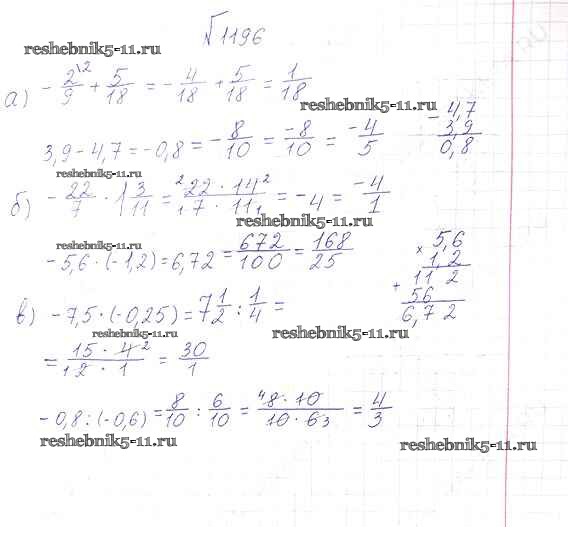 √1196
reshebnik5-11.ru
а) - 2\2/9 + 5/18 = - 4/18 + 5/18 = 1/18
reshebnik5-11.ru
3,9 - 4,7 = -0,8 = - 8/10 = -8/10 = -4/5
- 4,7
3,9
0,8
reshebnik5-11.ru
б) - 22/7 · 1 3/11 = 2 22 · 14 2/1 7 · 11 1 = -4 = -4/1
reshebnik5-11.ru
reshebnik5-11.ru
-5,6 · (-1,2) = 6,72 = 672/100 = 168/25
× 5,6
1,2
+ 11 2
56
6,7 2
в) -7,5 · (-0,25) = 7 1/2 : 1/4 =
reshebnik5-11.ru
reshebnik5-11.ru
= 15 · 4 2/1 2 · 1 = 30/1
-0,8 : (-0,6) = 8/10 : 6/10 = 4 8 · 10/10 · 6 3 = 4/3
reshebnik5-11.ru
reshebnik5-11.ru